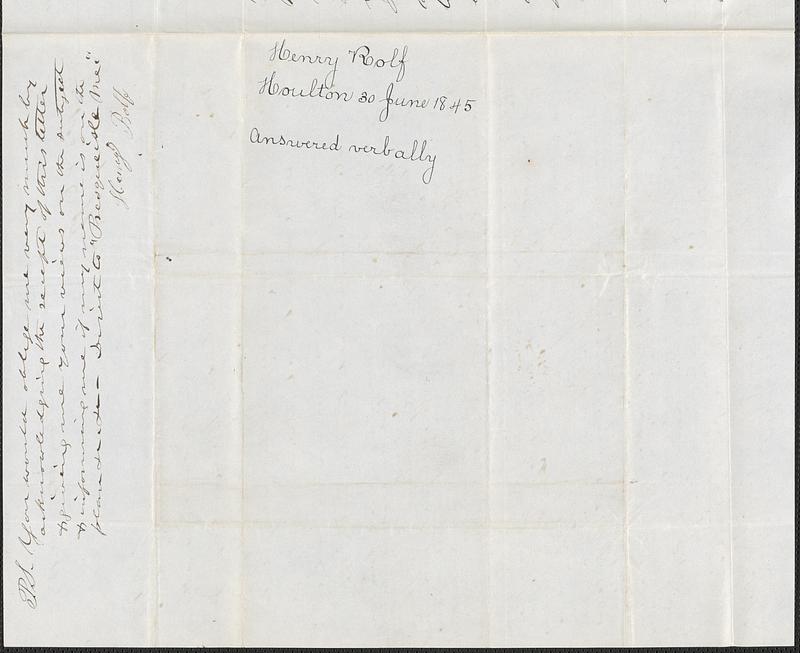 Henry Rolf
Houlton 30 June 1845
Answered verbally
P.S. You would oblige me very much by
acknowledging the receipt of this letter
& giving me your views on the subject
& informing me if my name is on the
plan &c &c — Direct to "Presqueisle Me"
Henry Rolf